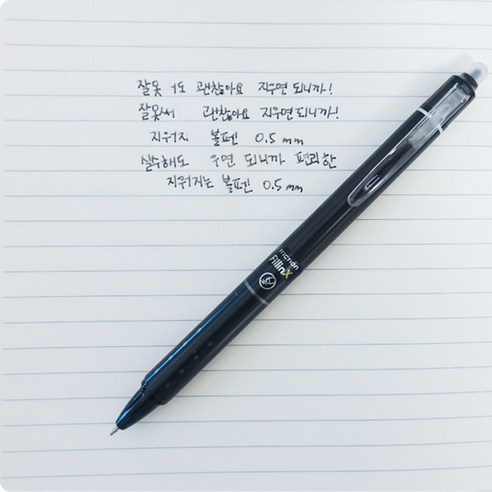 잘못 ㅓ도 괜찮아요 지우면 되니까!
잘못써 괜찮아요 지우면되니까!
지워지 볼펜 0.5 mm
실수해도 우면 되니까 편리한
지워지는 볼펜 0.5 mm
friction
FillinX